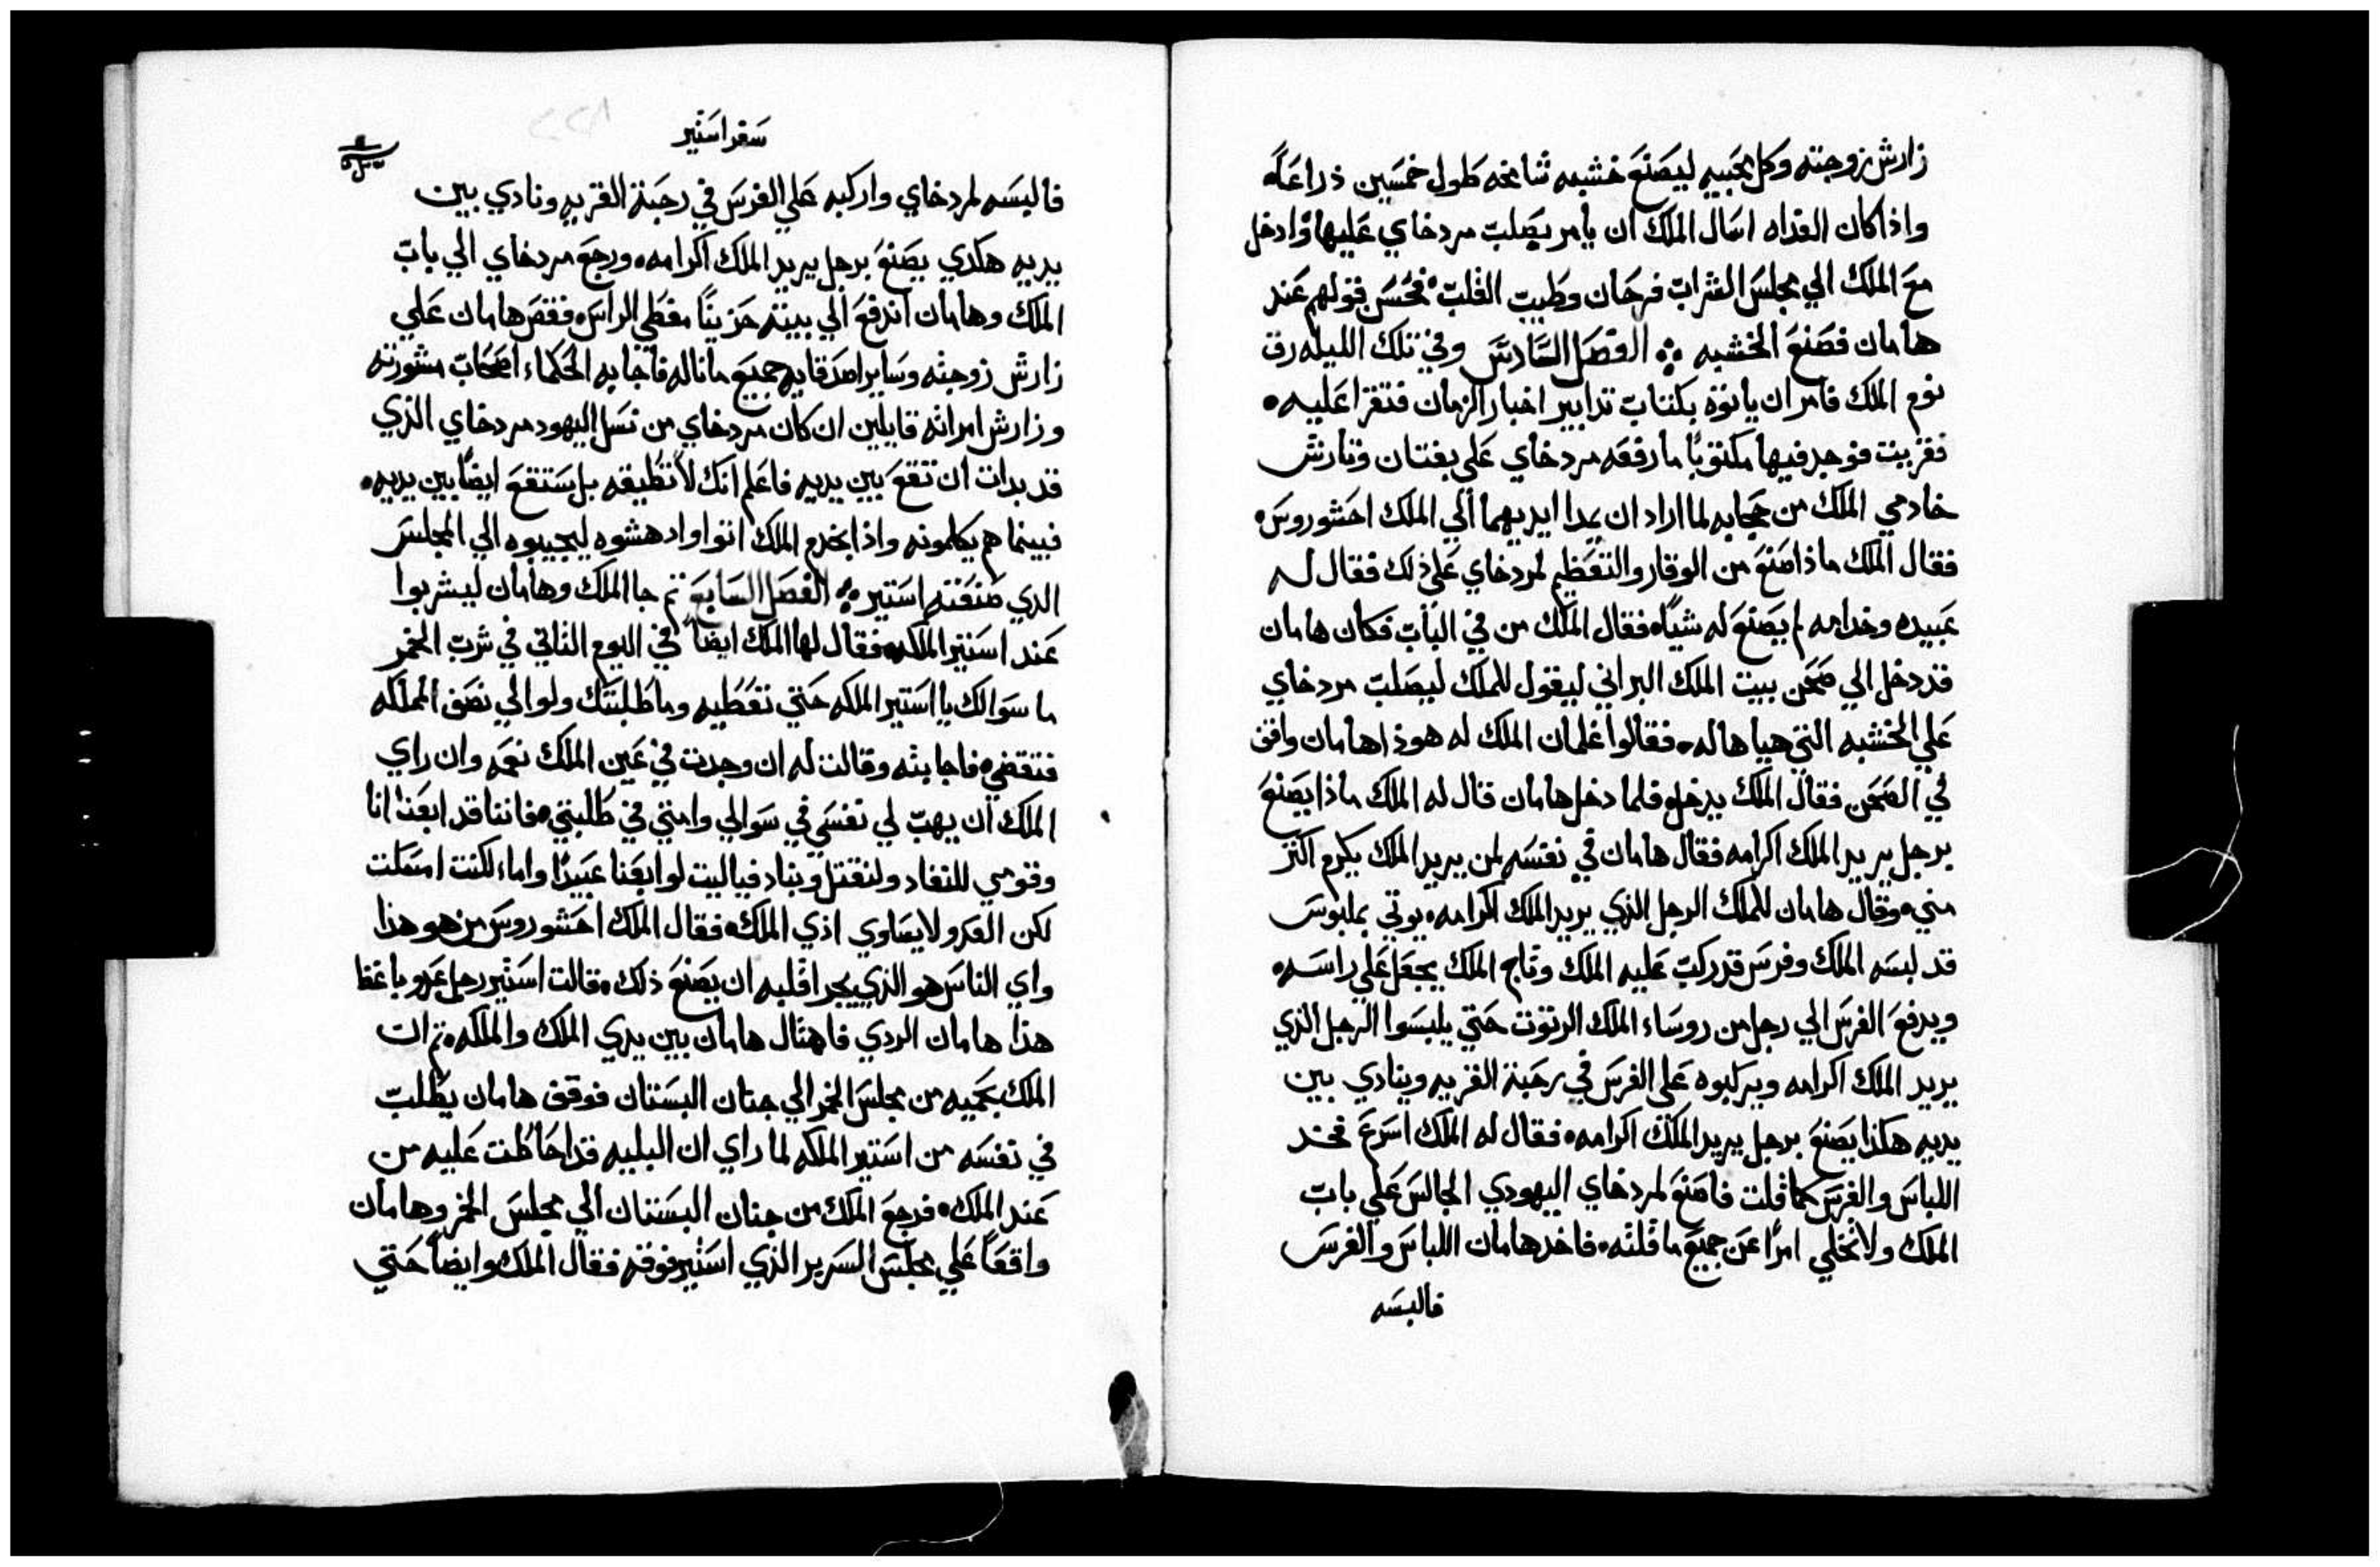 زارش زوجته وكل محبيه ليصنع خشبه شامخه طول خمسين ذراعاً
واذا كان الغداه اسال الملك ان يامر يصلب مردخاي عليها وادخل
مع الملك الي مجلس الشراب فرحان وطيب القلب فحسن قولهم عند
هامان فصنع الخشبه الفصل السادس وفي تلك الليله رق
نوم الملك فامر ان ياتوه بكتاب تدابير اخبار الزمان فتقرا عليه
فقريت فوجد فيها مكتوباً ما رفعه مردخاي علي بغتان وتارش
خادمي الملك من حجابه لما اراد ان يمدا ايديهما الي الملك احشوروس
فقال الملك ماذا صنع من الوقار والتعظيم لمردخاي علي ذلك فقال له
عبيده وخدامه لم يصنع له شياً فقال الملك من في الباب فكان هامان
قد دخل الي صحن بيت الملك البراني ليقول للملك ليصلب مردخاي
علي الخشبه التي هياها له فقالوا غلمان الملك له هوذا هامان واقف
في الصحن فقال الملك يدخل فلما دخل هامان قال له الملك ماذا يصنع
برجل يريد الملك اكرامه فقال هامان في نفسه لمن يريد الملك يكرم اكثر
مني وقال هامان للملك الرجل الذي يريد الملك اكرامه يوتي بملبوس
قد لبسه الملك وفرس قد ركب عليه الملك وتاج الملك يجعل علي راسه
ويدفع الفرس الي رجل من روساء الملك الرتوت حتي يلبسوا الرجل الذي
يريد الملك اكرامه ويركبوه علي الفرس في رحبة القريه وينادي بين
يديه هكذا يصنع برجل يريد الملك اكرامه فقال له الملك اسرع فخد
اللباس والفرس كما قلت فاصنع لمردخاي اليهودي الجالس علي باب
الملك ولا تخلي امراً عن جميع ما قلته فاخد هامان اللباس والفرس
فالبسه
سفر استير
٢٢٨
فالبسه لمردخاي واركبه علي الفرس في رحبة القريه ونادي بين
يديه هكدي يصنع برجل يريد الملك اكرامه ورجع مردخاي الي باب
الملك وهامان اندفع الي بيته حزيناً مغطي الراس فقص هامان علي
زارش زوجته وساير اصدقايه جميع ما ناله فاجابه الحكماء اصحاب مشورته
وزارش امراته قايلين ان كان مردخاي من نسل اليهود مردخاي الذي
قد بدات ان تقع بين يديه فاعلم انك لا تطيقه بل ستقع ايضاً بين يديه
فبينما هم يكلمونه واذا بخدم الملك اتوا وادهشوه ليجيبوه الي المجلس
الدي صنعته استير الفصل السابع تم جا الملك وهامان ليشربوا
عند استير الملكه فقال لها الملك ايضاً في اليوم الثاني في شرب الخمر
ما سوالك يا استير الملكه حتي تعطيه وما طلبتك ولو الي نصف المملكه
فتقضي فاجابته وقالت له ان وجدت في عين الملك نعمه وان راي
الملك ان يهب لي نفسي في سوالي وامتي في طلبتي فاننا قد ابعنا انا
وقومي للنفاد ولنقتل ونباد فياليت لو ابعنا عبيداً واماء لكنت امسكت
لكن العدو لا يساوي اذي الملك فقال الملك احشوروس من هو هذا
واي الناس هو الذي يجرا قلبه ان يصنع ذلك فقالت استير رجل عدو باغظ
هذا هامان الردي فاهتال هامان بين يدي الملك والملكه تم ان
الملك بحميه من مجلس الخمر الي جنان البستان فوقف هامان يطلب
في نفسه من استير الملكه لما راي ان البليه قد احاطت عليه من
عند الملك فرجع الملك من جنان البستان الي مجلس الخمر وهامان
واقعاً علي مجلس السرير الذي استير فوقه فقال الملك وايضاً حتي